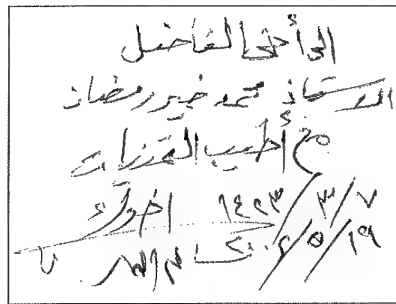 إلى أخي الفاضل
الأستاذ محمد خير رمضان
مع أطيب التمنيات
أخوك ١٤٢٣/٣/٧
٢٠٠٢/٥/١٩